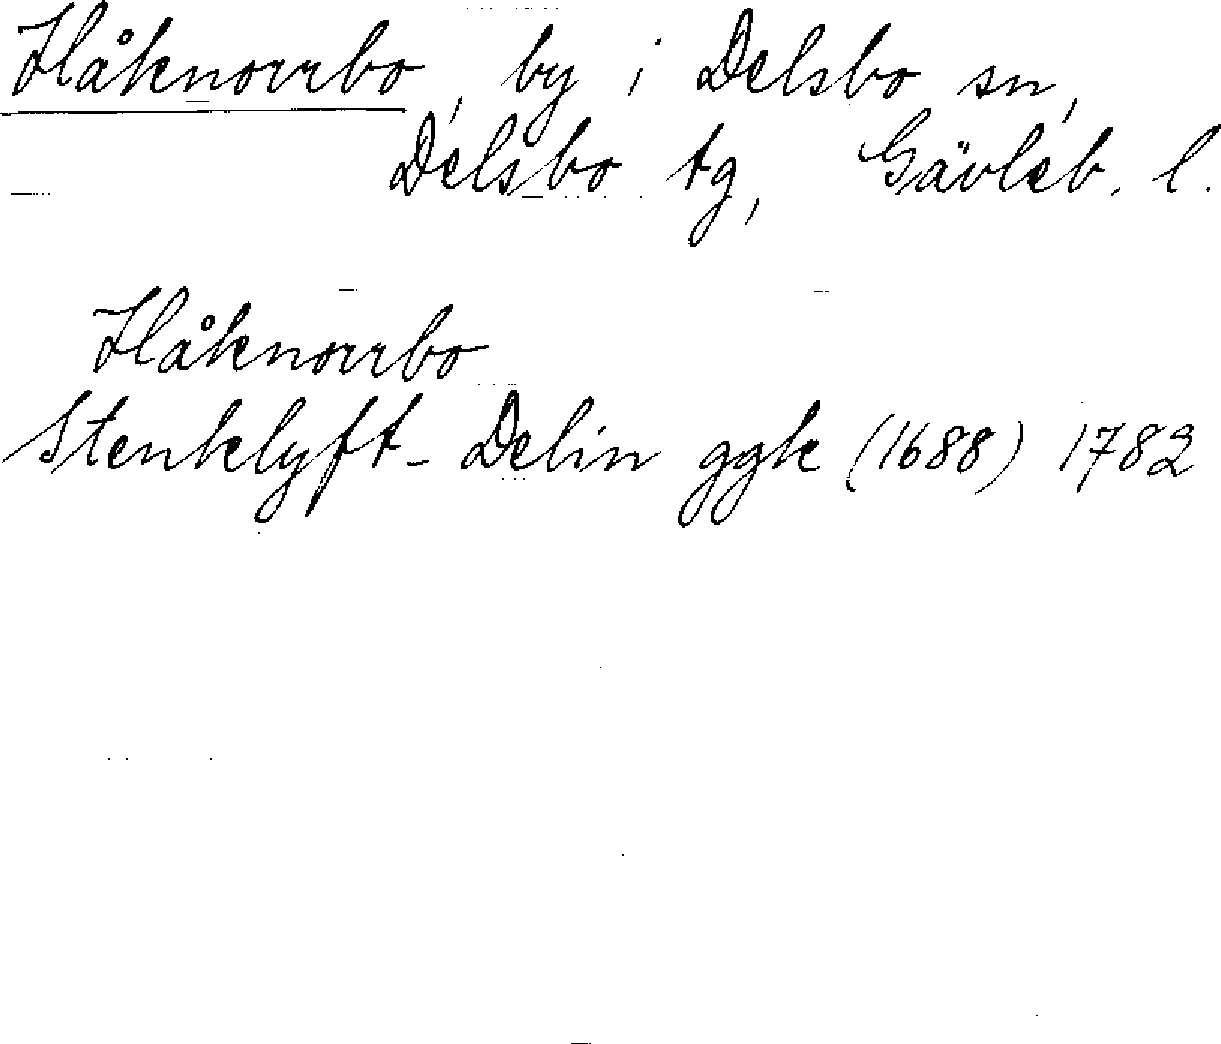 Håknorrbo, by i Delsbo sn,
Delsbo tg, Gävleb. l.
Håknorrbo
Stenklyft-Delin ggk (1688) 1782